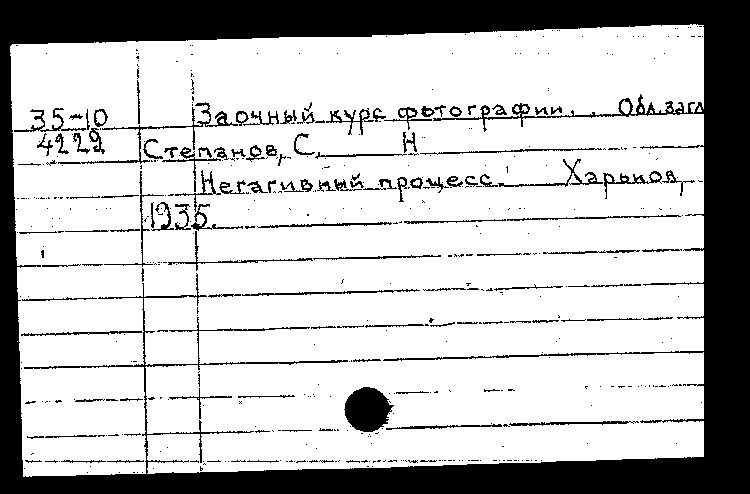 35-10 Заочный курс фотографии. . Обл.загл
4222 Степанов, С. Н
Негативный процесс. Харьков,
1935.